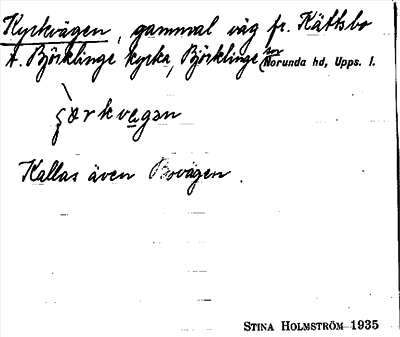 Kyrkvägen, gammal väg fr. Kättsbo
t. Björklinge kyrka, Björklinge sn Norunda hd, Upps. l.
Kallas även Bovägen.
STINA HOLMSTRÖM 1935